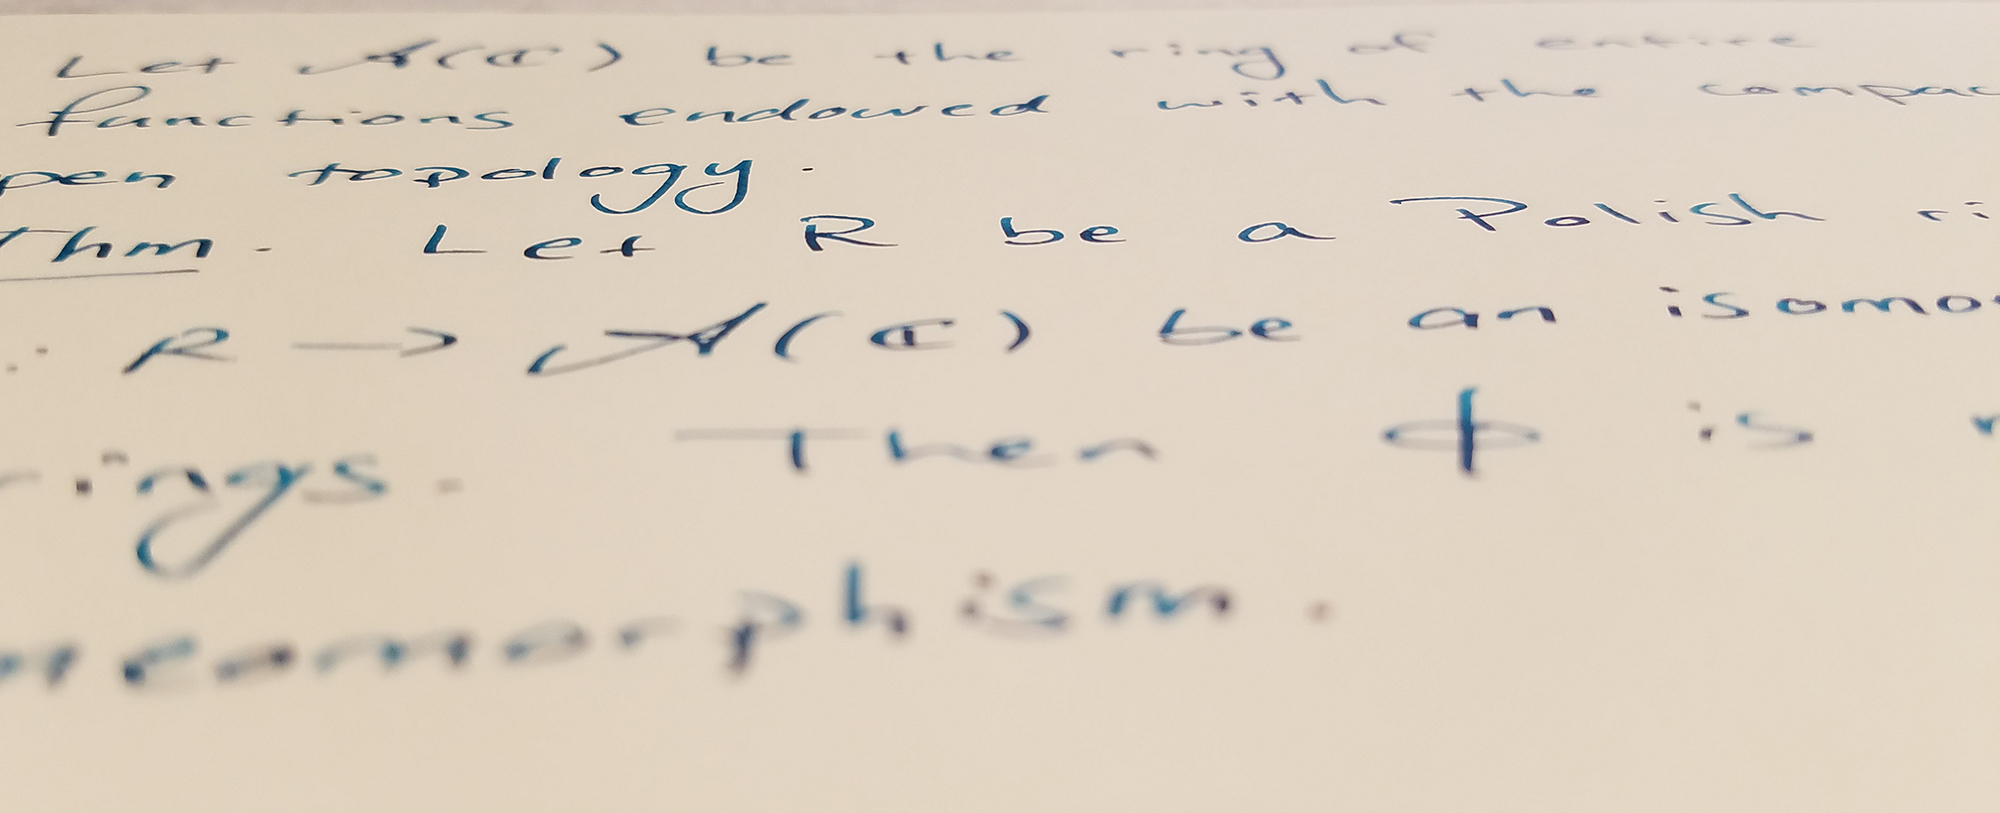 Let 𝒜(ℂ) be the ring of entire
functions endowed with the compac
pen topology.
Thm. Let R be a Polish ri
: R → 𝒜(ℂ) be an isomo
rings. Then ϕ is
meomorphism.